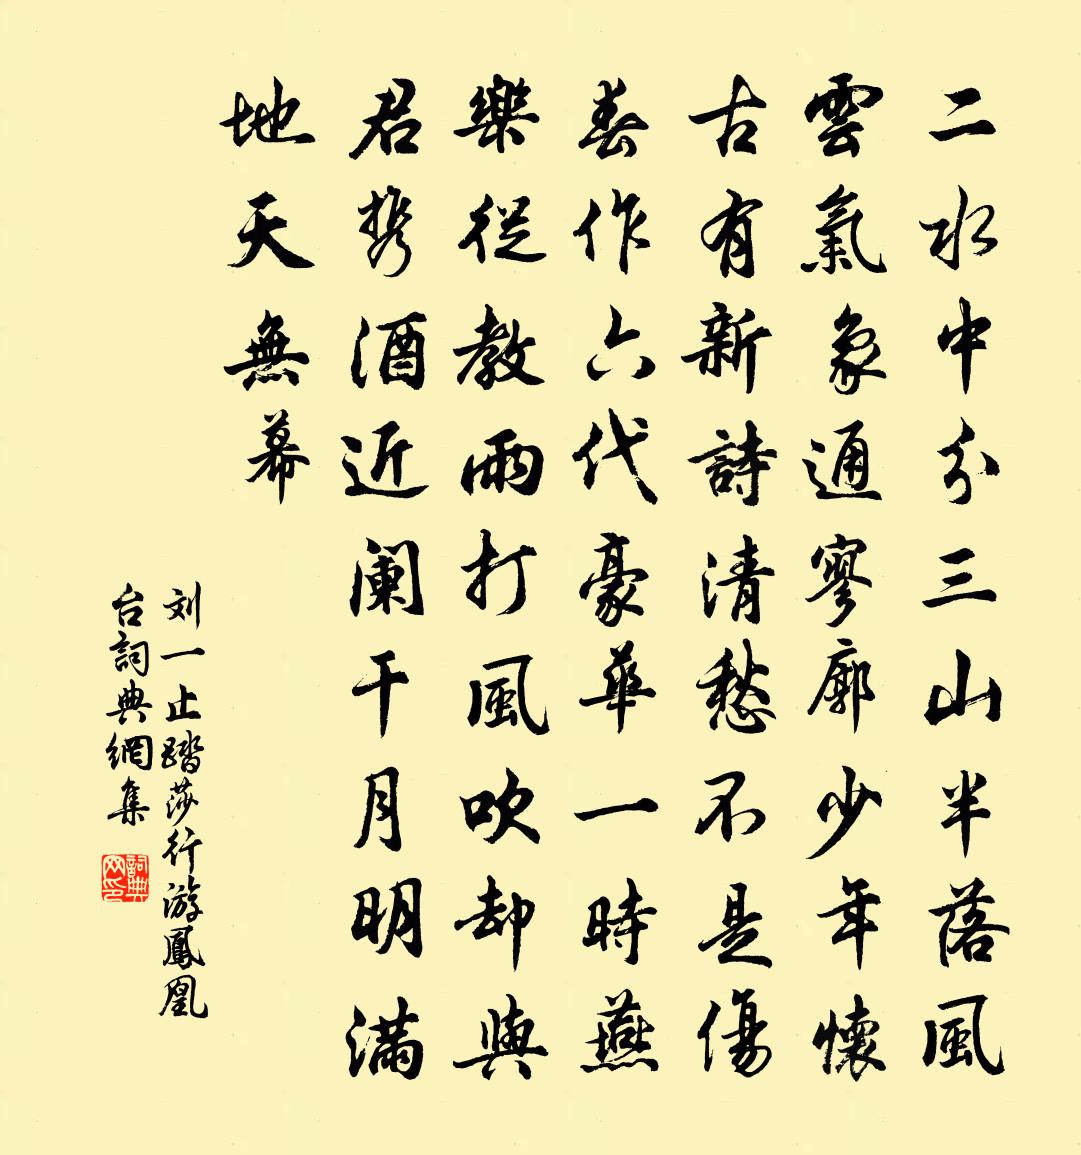 二水中分三山半落風
雲氣象通寥廓少年懷
古有新詩清愁不是傷
春作六代豪華一時燕
樂從教雨打風吹却與
君携酒近闌干月明滿
地天無幕
刘一止踏莎行游鳳凰
台詞典網集
詞典网印